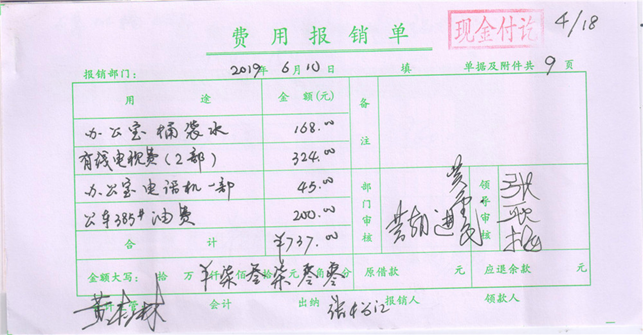 费用报销单
现金付讫
4/18
报销部门： 2019年6月10日 填 单据及附件共9页
用途 金额(元) 备注
办公室桶装水 168.00
有线电视费(2部) 324.00
办公室电话机一部 45.00
公车385#油费 200.00
合计 ¥737.00
部门审核
领导审核
金额大写： 拾 万 仟 佰 拾 元 角 分 原借款 元 应退余款 元
会计 出纳 报销人 领款人